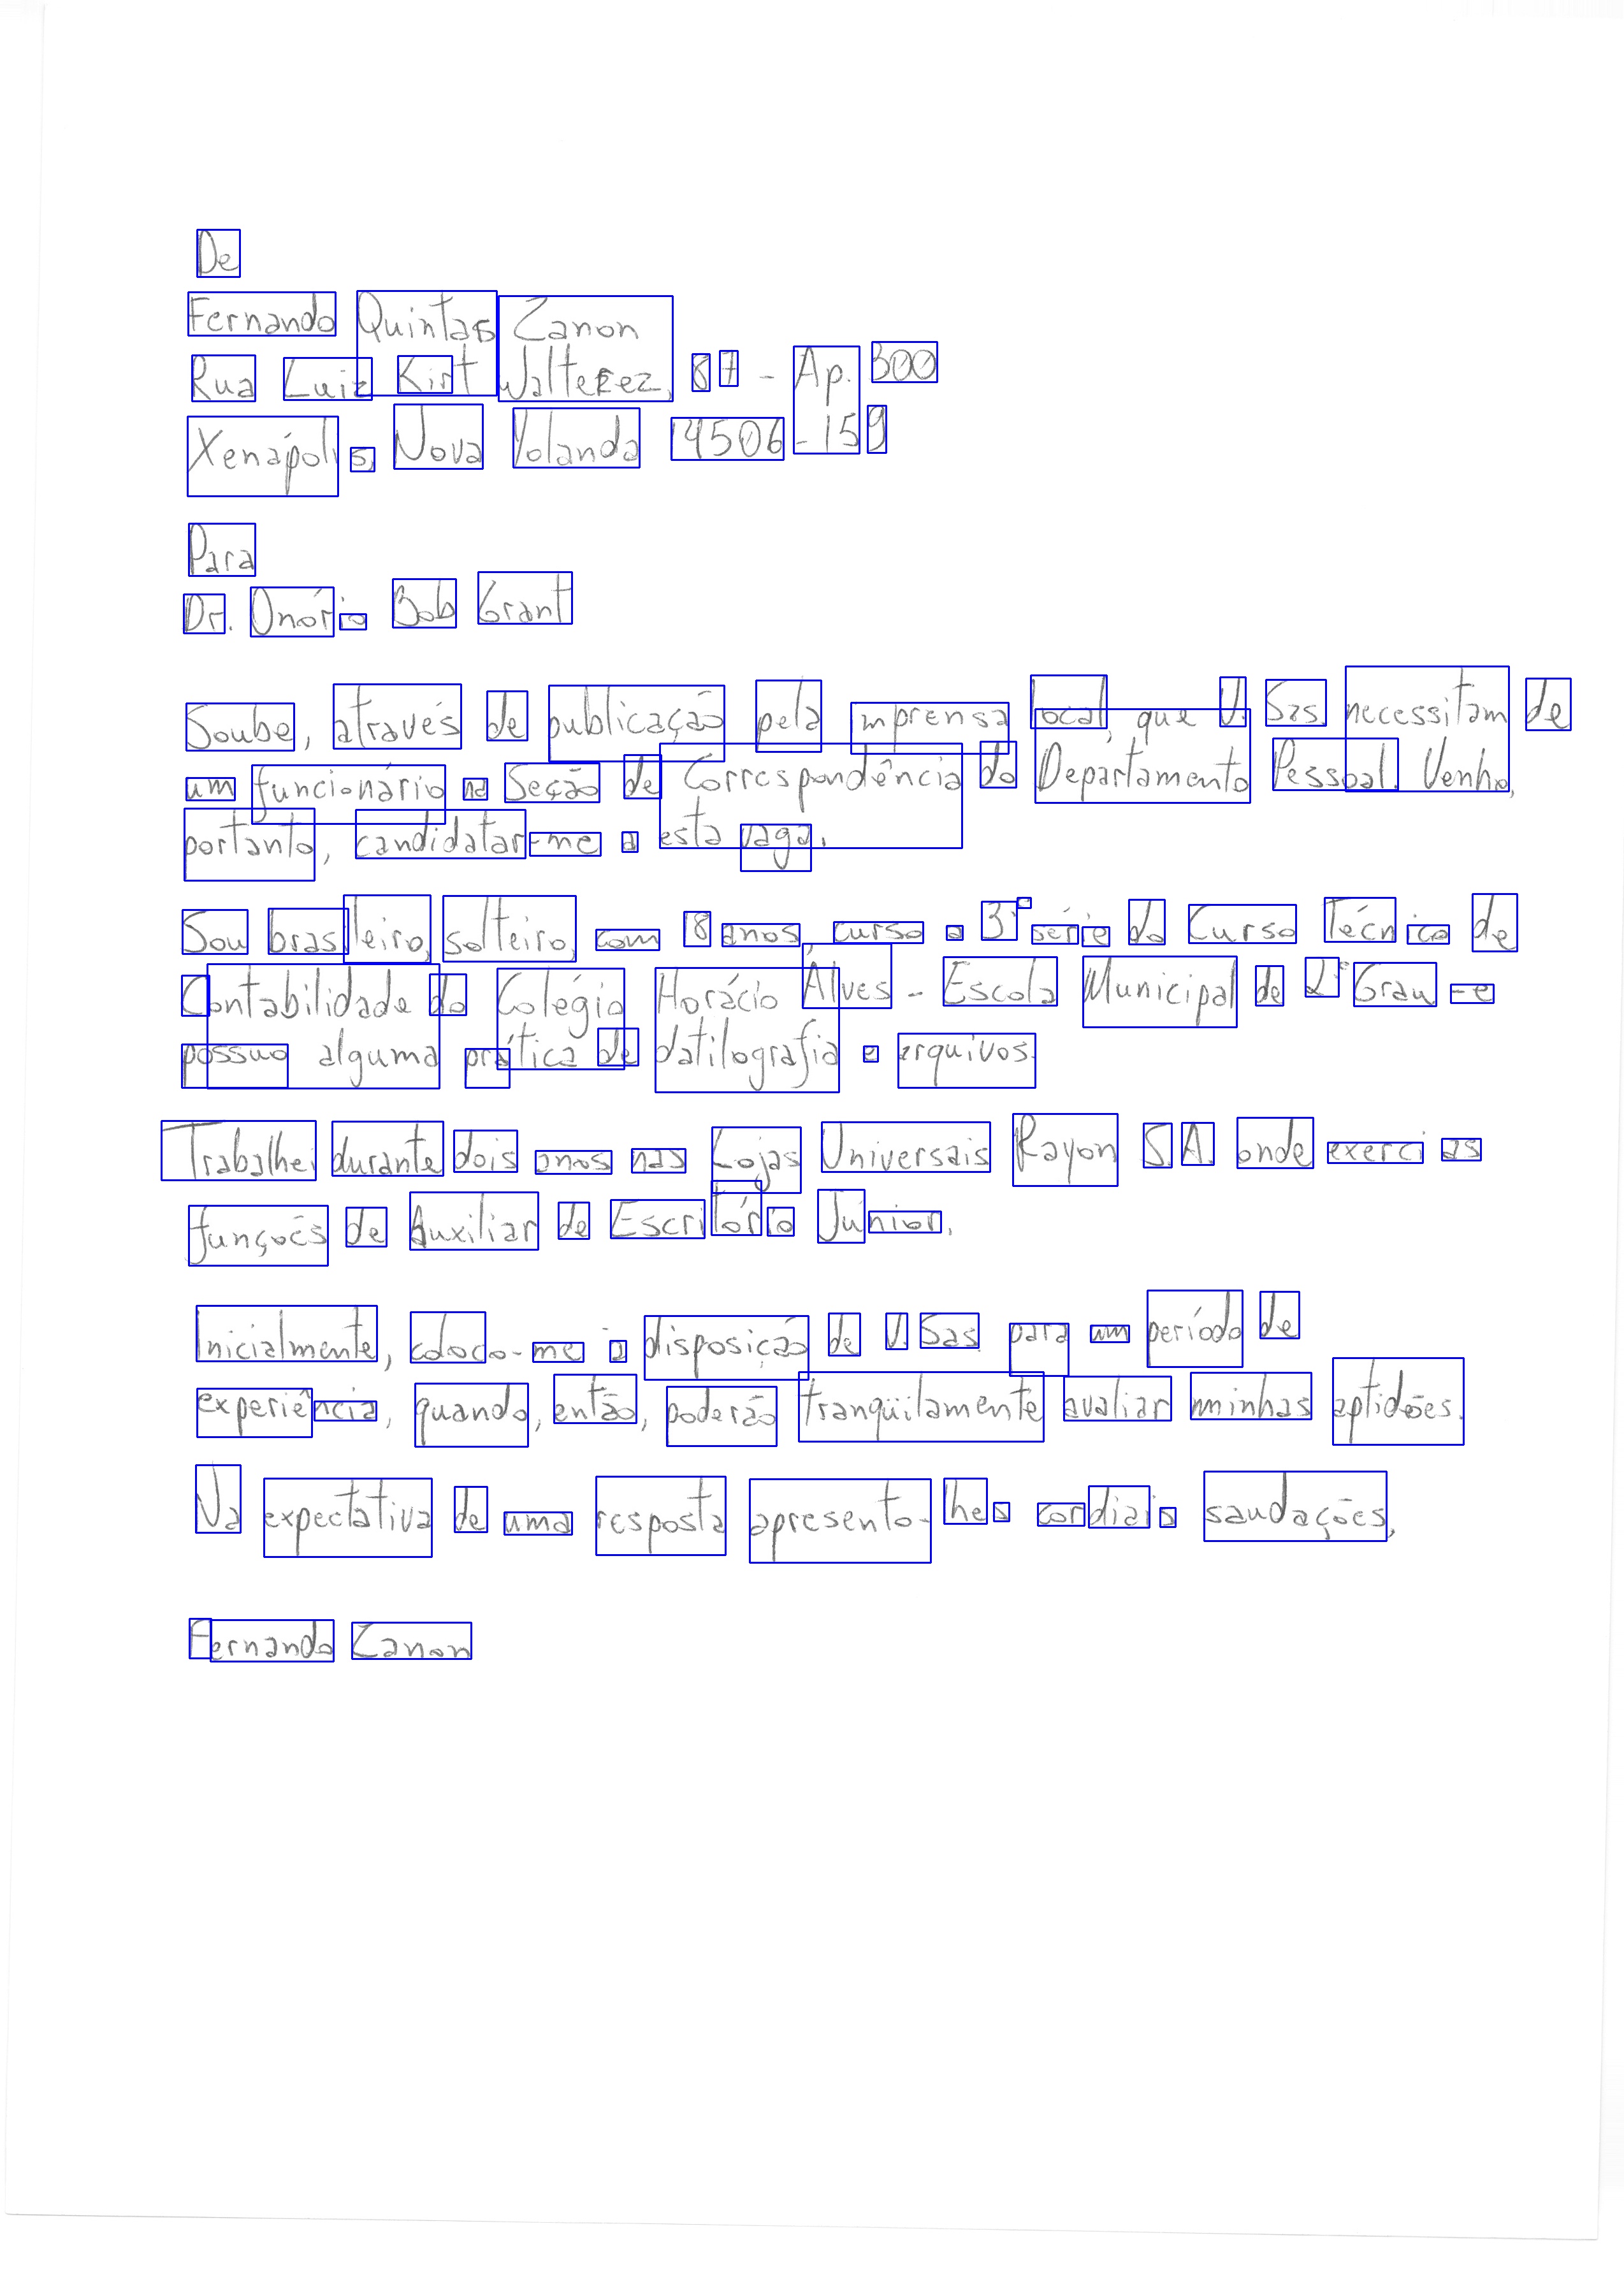 De
Fernando Quintas Zanon
Rua Luiz Kirt Walterez, 87 - Ap. 300
Xenápolis, Nova Yolanda 14506-159
Para
Dr. Onório Bob Grant
Soube, através de publicação pela imprensa local, que V. Sas. necessitam de
um funcionário na Seção de Correspondência do Departamento Pessoal. Venho,
portanto, candidatar-me a esta vaga.
Sou brasileiro, solteiro, com 18 anos, curso a 3ª série do Curso Técnico de
Contabilidade do Colégio Horácio Álves - Escola Municipal de 2º Grau - e
possuo alguma prática de datilografia e arquivos.
Trabalhei durante dois anos nas Lojas Universais Rayon S.A. onde exerci as
funções de Auxiliar de Escritório Júnior.
Inicialmente, coloco-me à disposição de V. Sas para um período de
experiência, quando, então, poderão tranqüilamente avaliar minhas aptidões.
Na expectativa de uma resposta apresento-lhes cordiais saudações,
Fernando Zanon